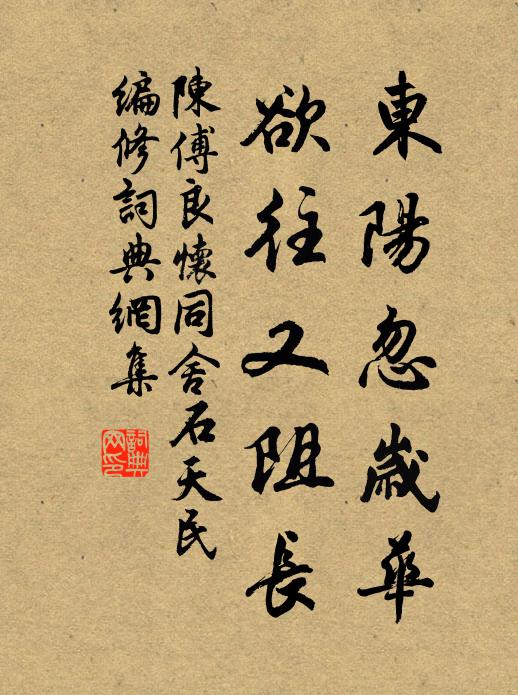 東陽忽歲華
欲往又阻長
陳傅良懷同舍石天民
編修詞典網集
詞典網印